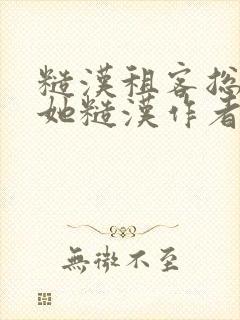 糙漢租客总
她糙漢作者
無微不至